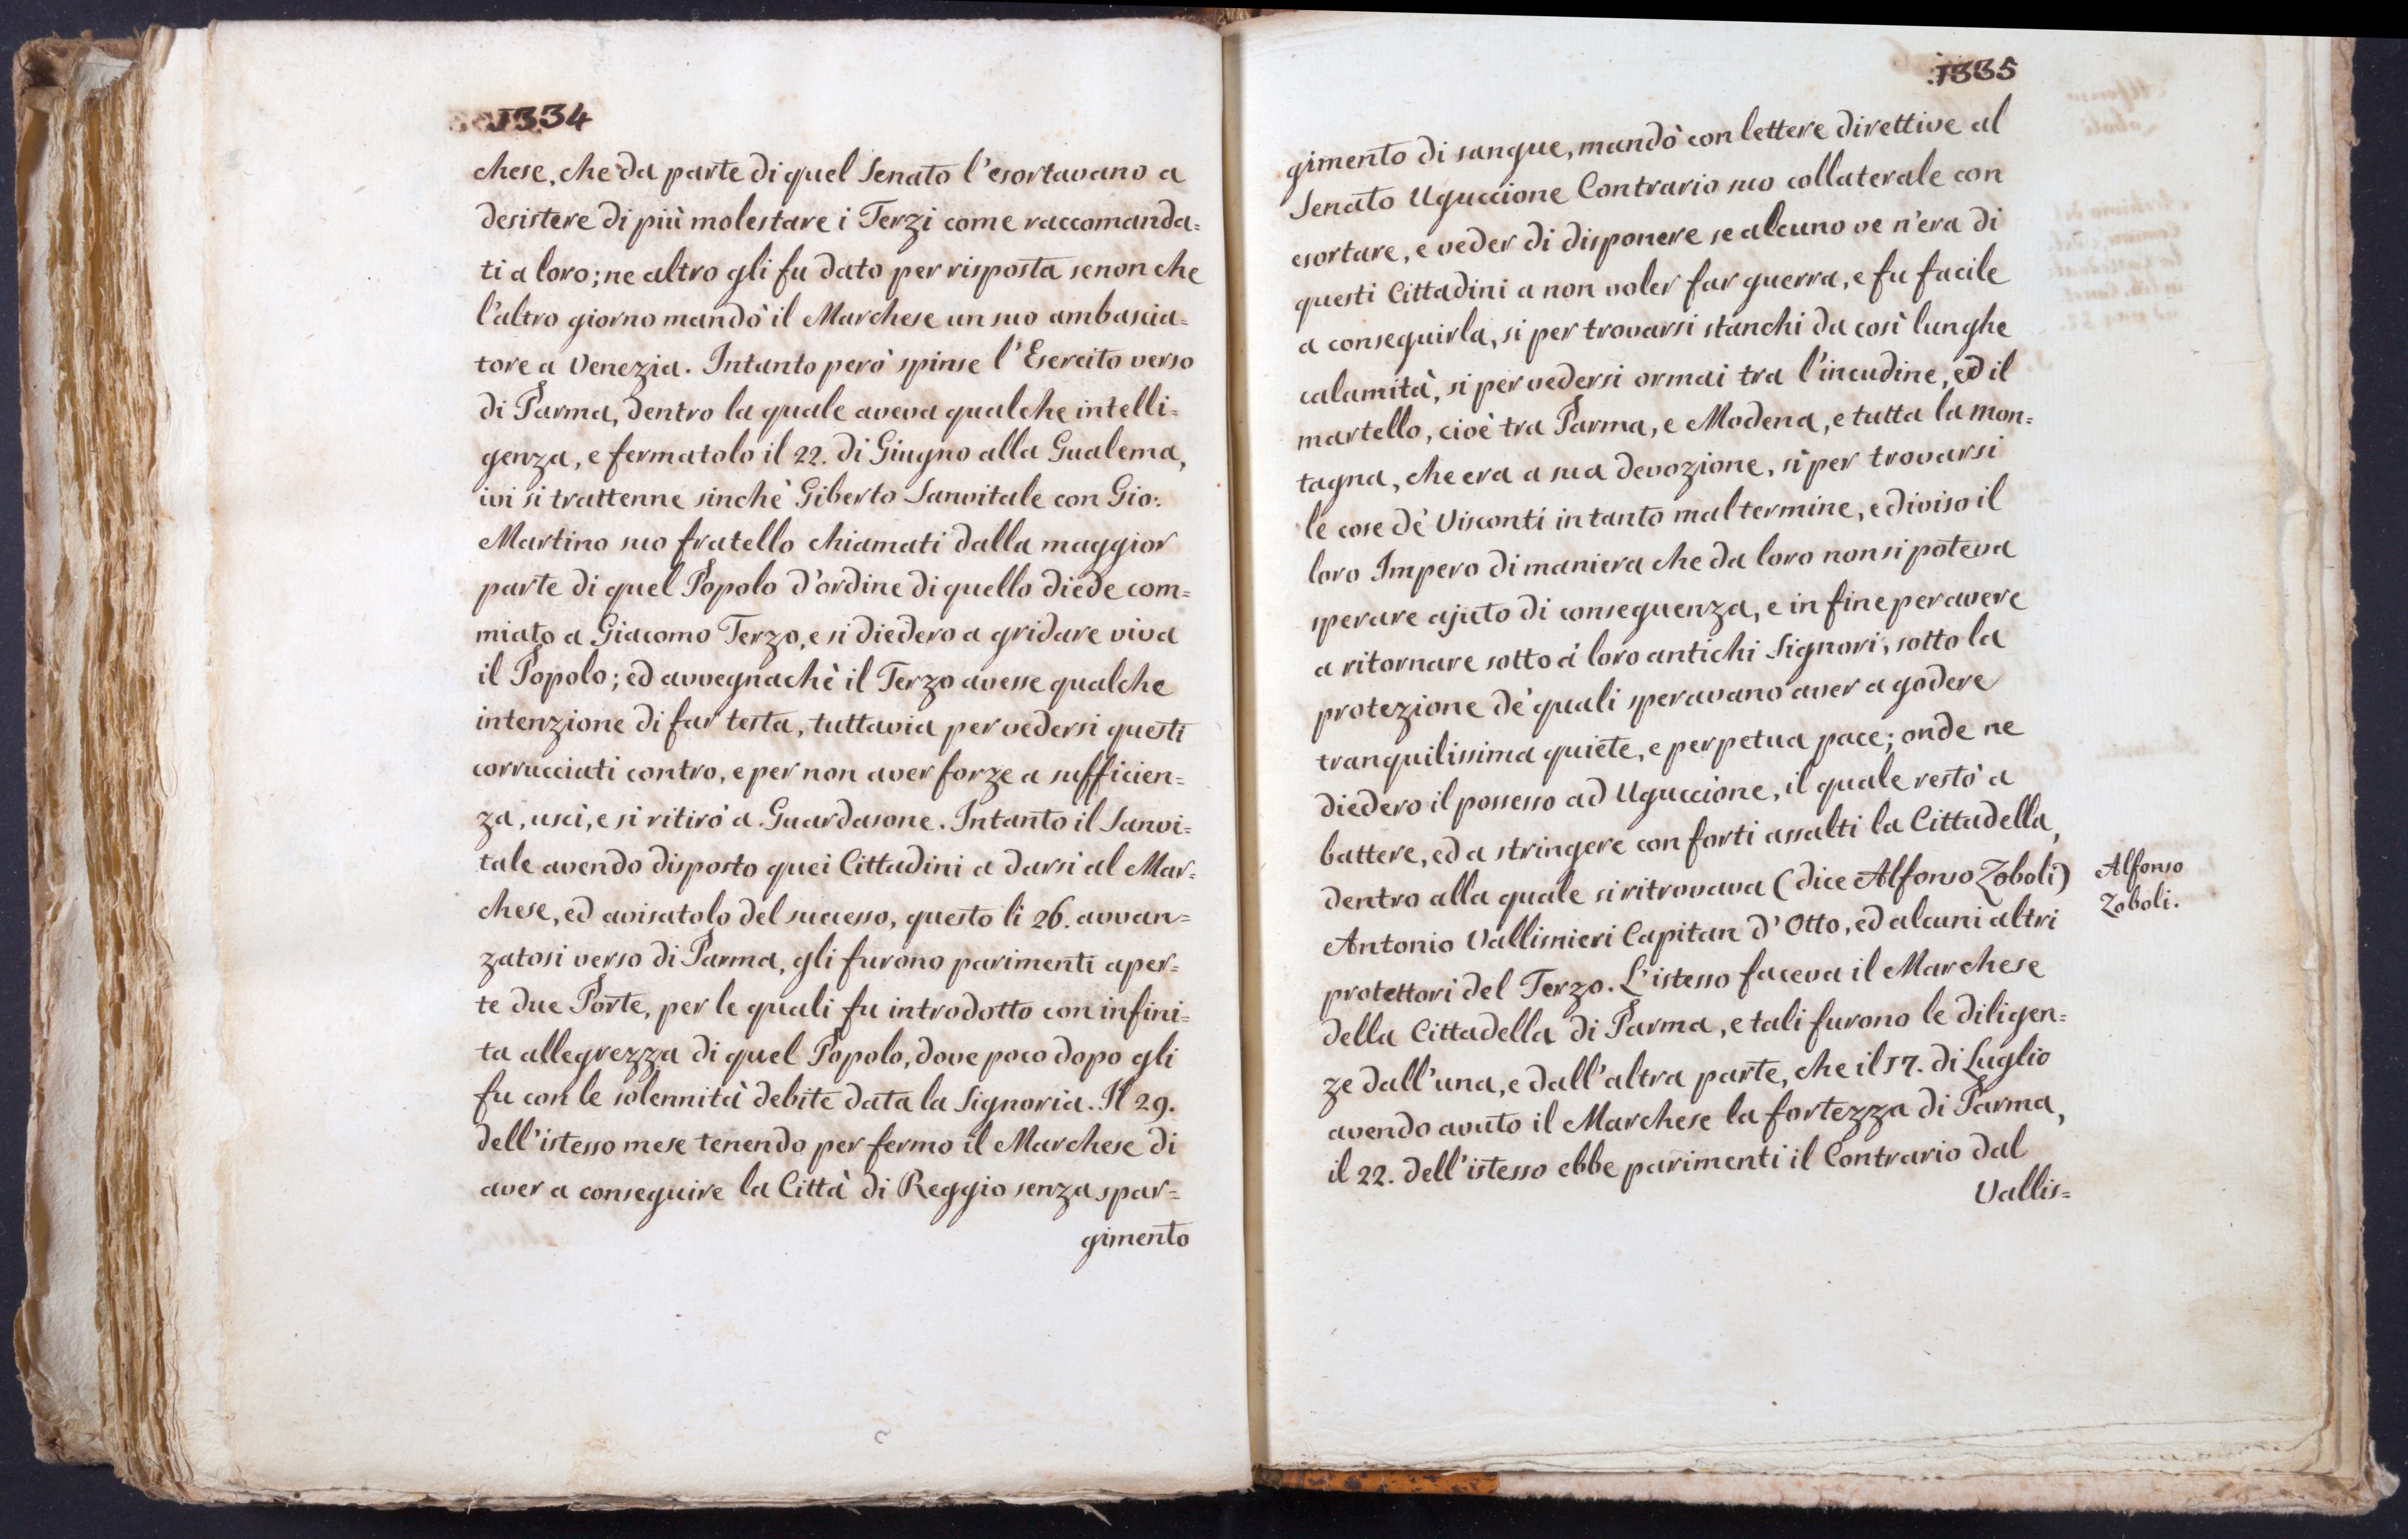 1334
chese, che da parte di quel Senato l'esortavano a
desistere di più molestare i Terzi come raccomanda=
ti a loro; ne altro gli fu dato per risposta senon che
l'altro giorno mandò il Marchese un suo ambascia=
tore a Venezia. Intanto però spinse l'Esercito verso
di Parma, dentro la quale aveva qualche intelli=
genza, e fermatolo il 22. di Giugno alla Gualema,
ivi si trattenne sinchè Giberto Sanvitale con Gio:
Martino suo fratello chiamati dalla maggior
parte di quel Popolo d'ordine di quello diede com=
miato a Giacomo Terzo, e si diedero a gridare viva
il Popolo; ed avvegnachè il Terzo avesse qualche
intenzione di far testa, tuttavia per vedersi questi
corrucciati contro, e per non aver forze a sufficien=
za, uscì, e si ritirò a Guardasone. Intanto il Sanvi=
tale avendo disposto quei Cittadini a darsi al Mar=
chese, ed avisatolo del successo, questo li 26. avvan=
zatosi verso di Parma, gli furono parimenti aper=
te due Porte, per le quali fu introdotto con infini=
ta allegrezza di quel Popolo, dove poco dopo gli
fu con le solennità debite data la Signoria. Il 29.
dell'istesso mese tenendo per fermo il Marchese di
aver a conseguire la Città di Reggio senza spar=
gimento
1335
gimento di sangue, mandò con lettere direttive al
Senato Uguccione Contrario suo collaterale con
esortare, e veder di disponere se alcuno ve n'era di
questi Cittadini a non voler far guerra, e fu facile
a conseguirla, si per trovarsi stanchi da così lunghe
calamità, si per vedersi ormai tra l'incudine, ed il
martello, cioè tra Parma, e Modena, e tutta la mon=
tagna, che era a sua devozione, sì per trovarsi
le cose de' Visconti in tanto mal termine, e diviso il
loro Impero di maniera che da loro non si poteva
sperare ajuto di conseguenza, e in fine per avere
a ritornare sotto a' loro antichi Signori, sotto la
protezione de' quali speravano aver a godere
tranquilissima quiete, e perpetua pace; onde ne
diedero il possesso ad Uguccione, il quale restò a
battere, ed a stringere con forti assalti la Cittadella,
dentro alla quale si ritrovava (dice Alfonso Zoboli)
Alfonso
Zoboli.
Antonio Vallisnieri Capitan d'Otto, ed alcuni altri
protettori del Terzo. L'istesso faceva il Marchese
della Cittadella di Parma, e tali furono le diligen=
ze dall'una, e dall'altra parte, che il 17. di Luglio
avendo avuto il Marchese la fortezza di Parma,
il 22. dell'istesso ebbe parimenti il Contrario dal
Vallis=